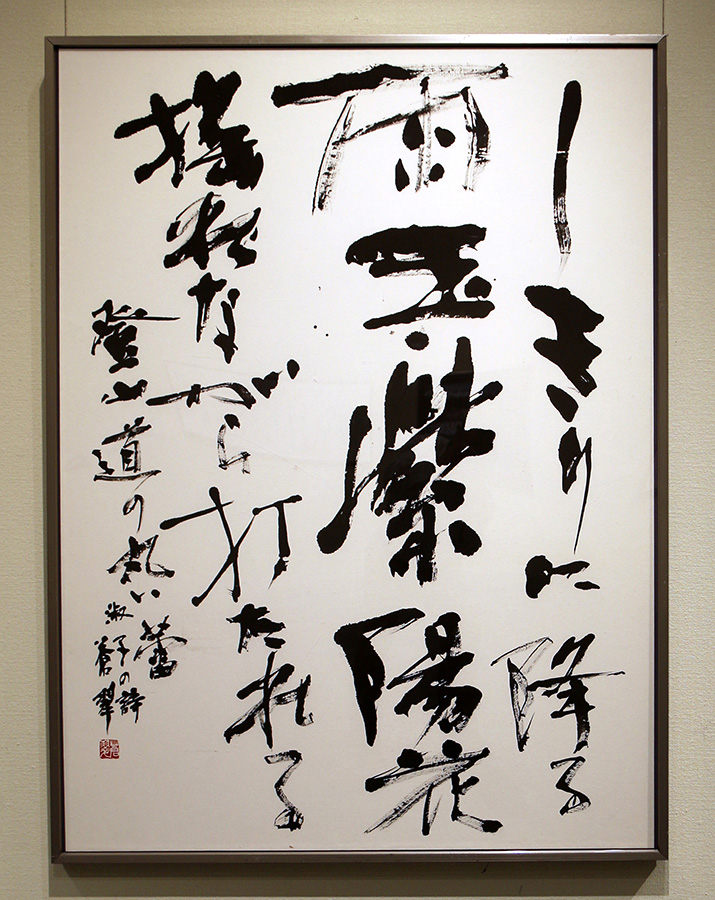 しきりに降る
雨玉紫陽花
揺れながら打たれる
登山道の丸い蕾
淑子の詩
蒼